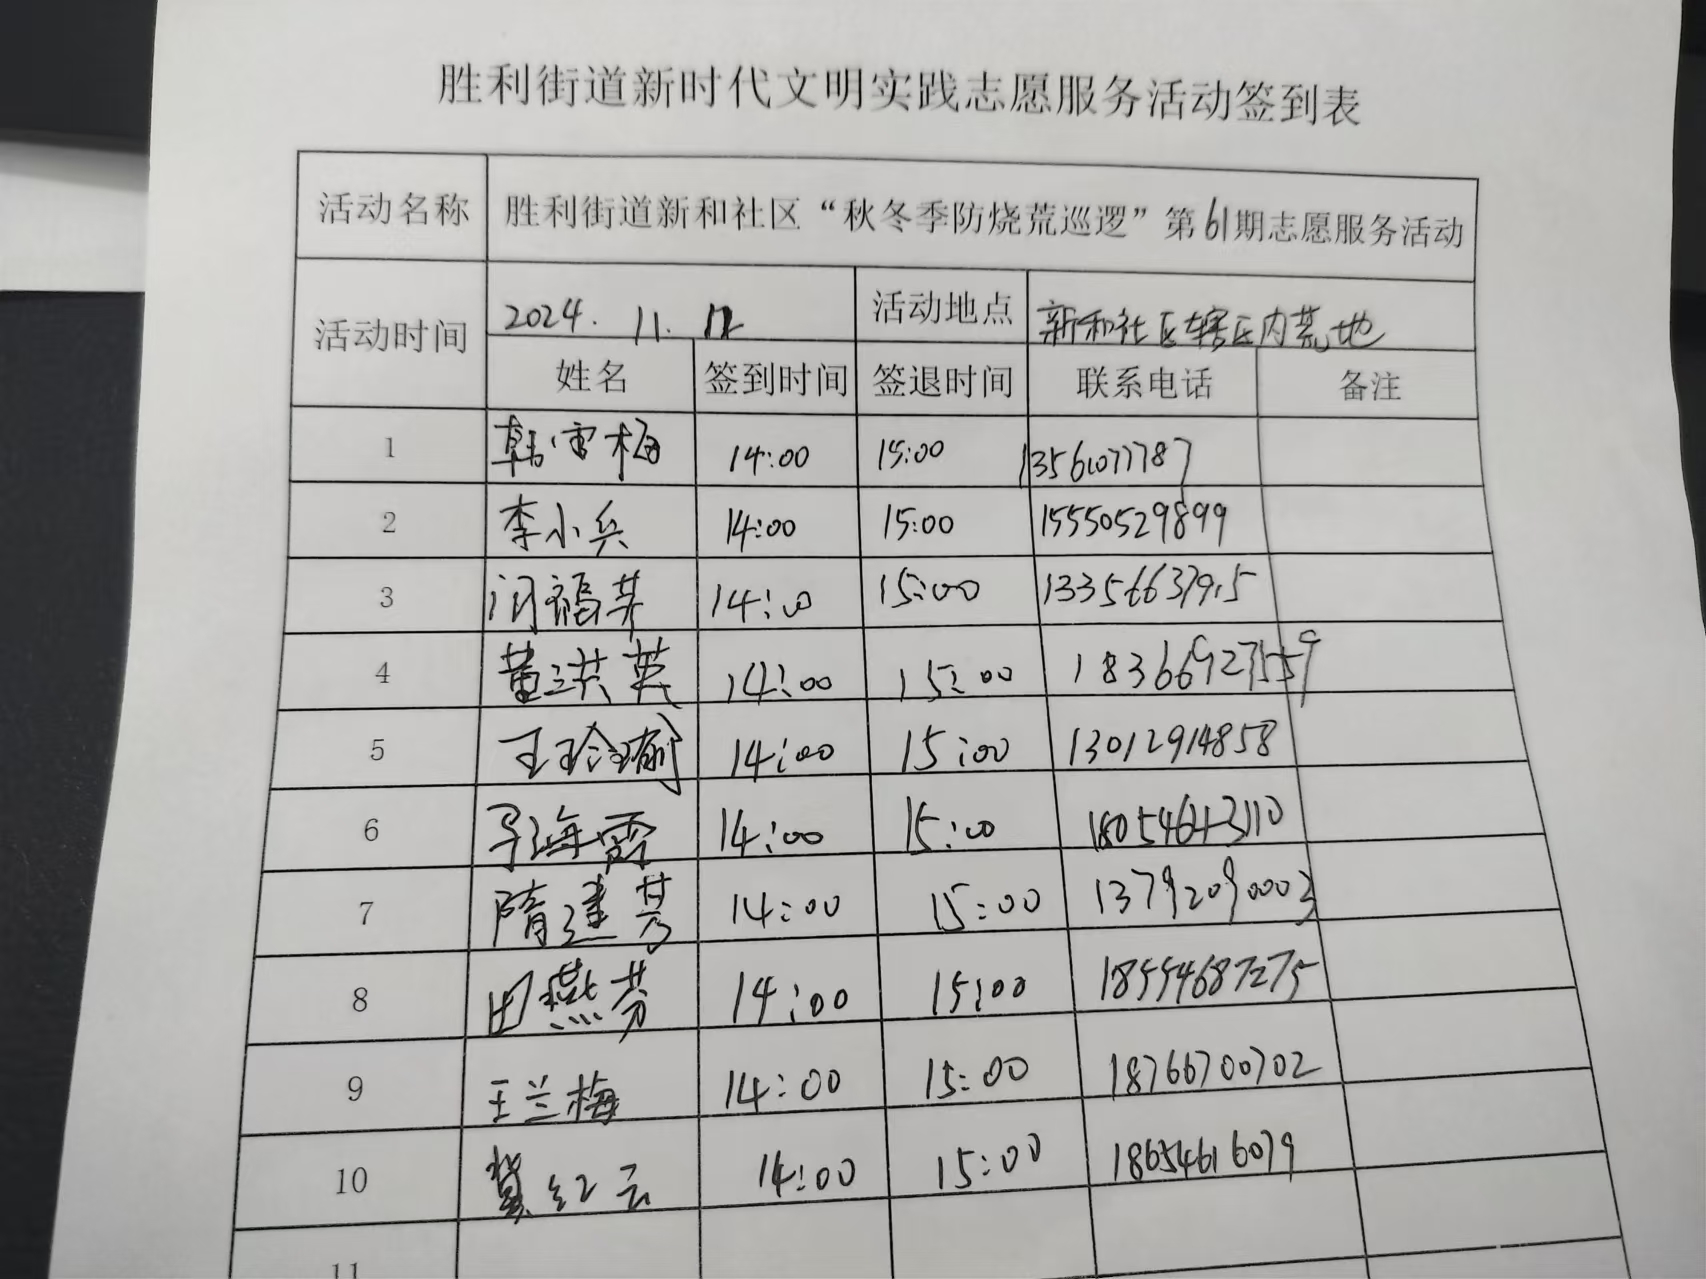 胜利街道新时代文明实践志愿服务活动签到表
活动名称 胜利街道新和社区“秋冬季防烧荒巡逻”第61期志愿服务活动
活动时间 2024.11.12 活动地点 新和社区辖区内荒地
姓名 签到时间 签退时间 联系电话 备注
1 韩雪梅 14:00 15:00 13561077787
2 李小兵 14:00 15:00 15550529899
3 闫福英 14:00 15:00 13356637915
4 黄洪英 14:00 15:00 18366927559
5 王玲瑜 14:00 15:00 13012914858
6 海霞 14:00 15:00 18054643110
7 隋建芳 14:00 15:00 13792090003
8 田燕芬 14:00 15:00 18554687275
9 王兰梅 14:00 15:00 18766700702
10 红云 14:00 15:00 18654616079
11